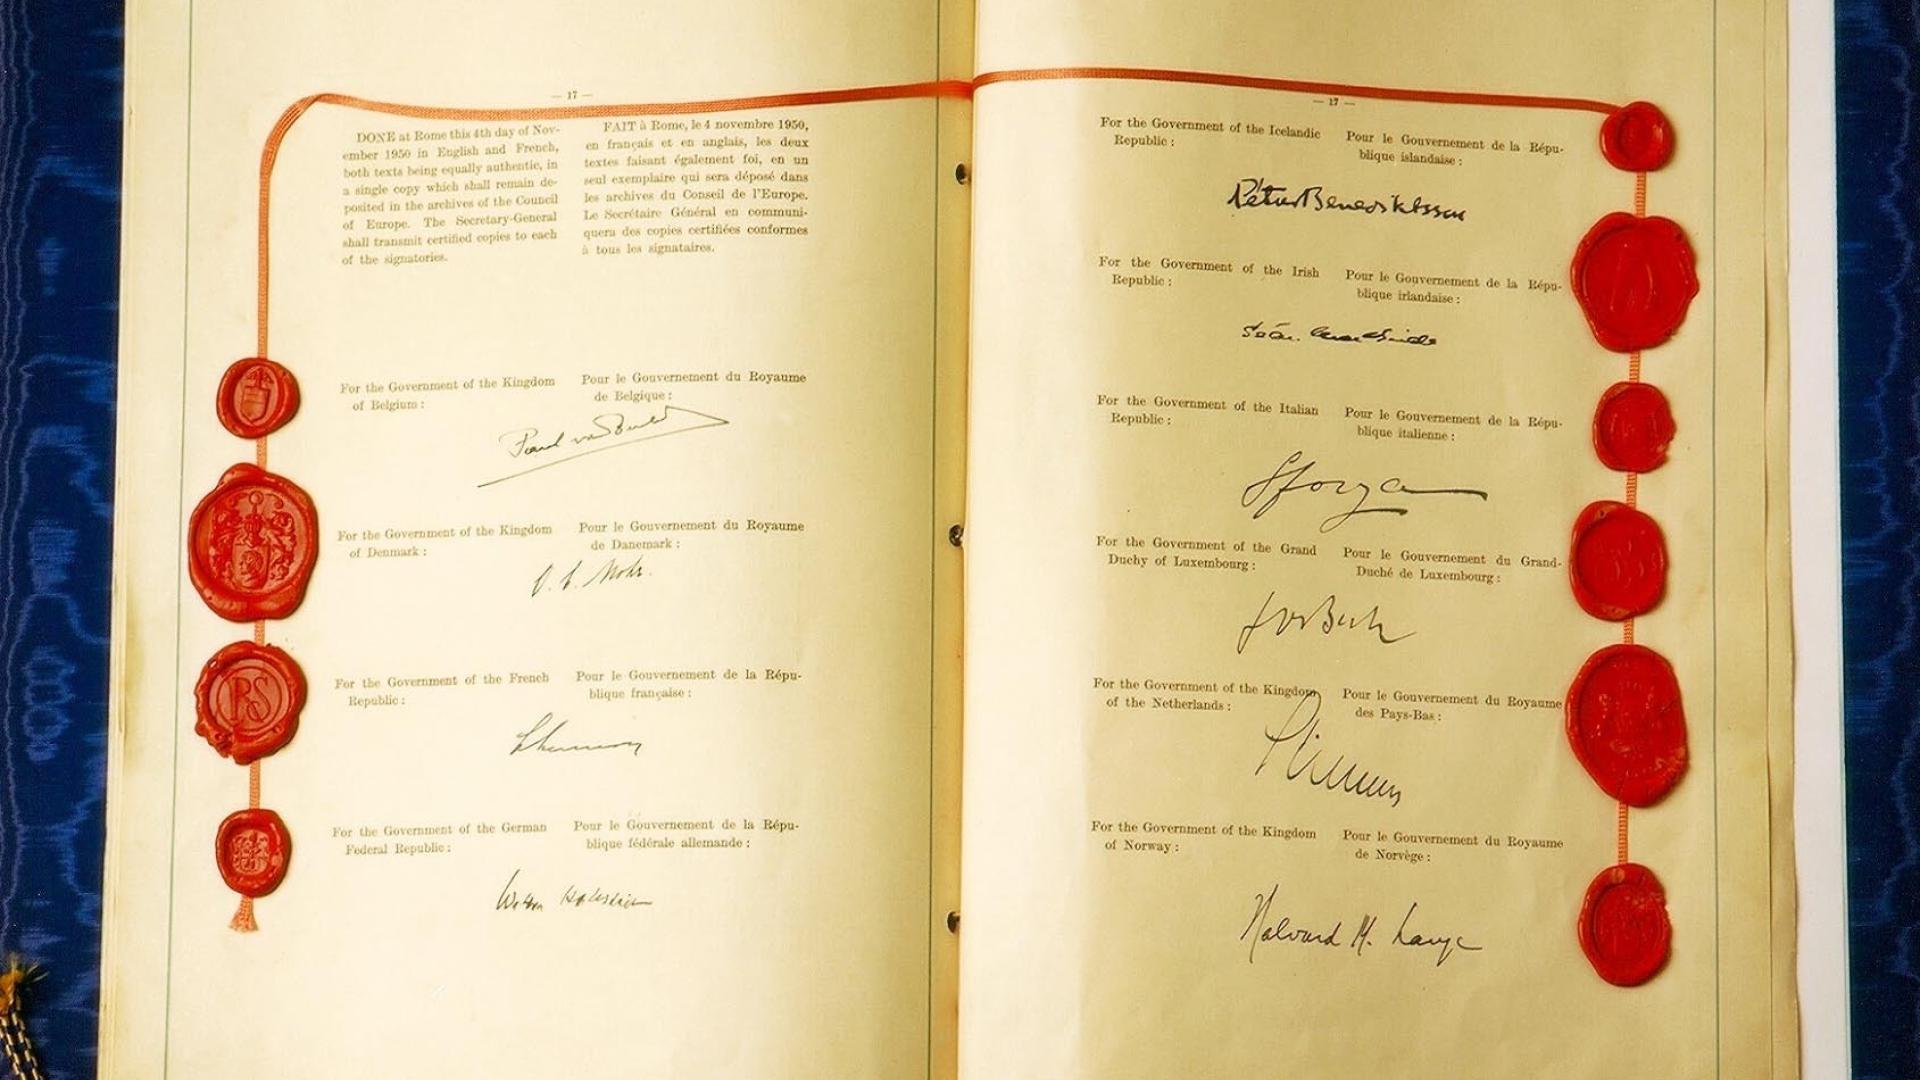 — 17 —
DONE at Rome this 4th day of Nov-
ember 1950 in English and French,
both texts being equally authentic, in
a single copy which shall remain de-
posited in the archives of the Council
of Europe. The Secretary-General
shall transmit certified copies to each
of the signatories.
FAIT à Rome, le 4 novembre 1950,
en français et en anglais, les deux
textes faisant également foi, en un
seul exemplaire qui sera déposé dans
les archives du Conseil de l'Europe.
Le Secrétaire Général en communi-
quera des copies certifiées conformes
à tous les signataires.
For the Government of the Kingdom
of Belgium :
Pour le Gouvernement du Royaume
de Belgique :
Paul van
For the Government of the Kingdom
of Denmark :
Pour le Gouvernement du Royaume
de Danemark :
O. C. Mohr.
For the Government of the French
Republic :
Pour le Gouvernement de la Répu-
blique française :
RS
For the Government of the German
Federal Republic :
Pour le Gouvernement de la Répu-
blique fédérale allemande :
— 17 —
For the Government of the Icelandic
Republic :
Pour le Gouvernement de la Répu-
blique islandaise :
Pétur Benediktsson
For the Government of the Irish
Republic :
Pour le Gouvernement de la Répu-
blique irlandaise :
Seán
For the Government of the Italian
Republic :
Pour le Gouvernement de la Répu-
blique italienne :
Sforza
For the Government of the Grand
Duchy of Luxembourg :
Pour le Gouvernement du Grand-
Duché de Luxembourg :
For the Government of the Kingdom
of the Netherlands :
Pour le Gouvernement du Royaume
des Pays-Bas :
For the Government of the Kingdom
of Norway :
Pour le Gouvernement du Royaume
de Norvège :
Halvard M. Lange